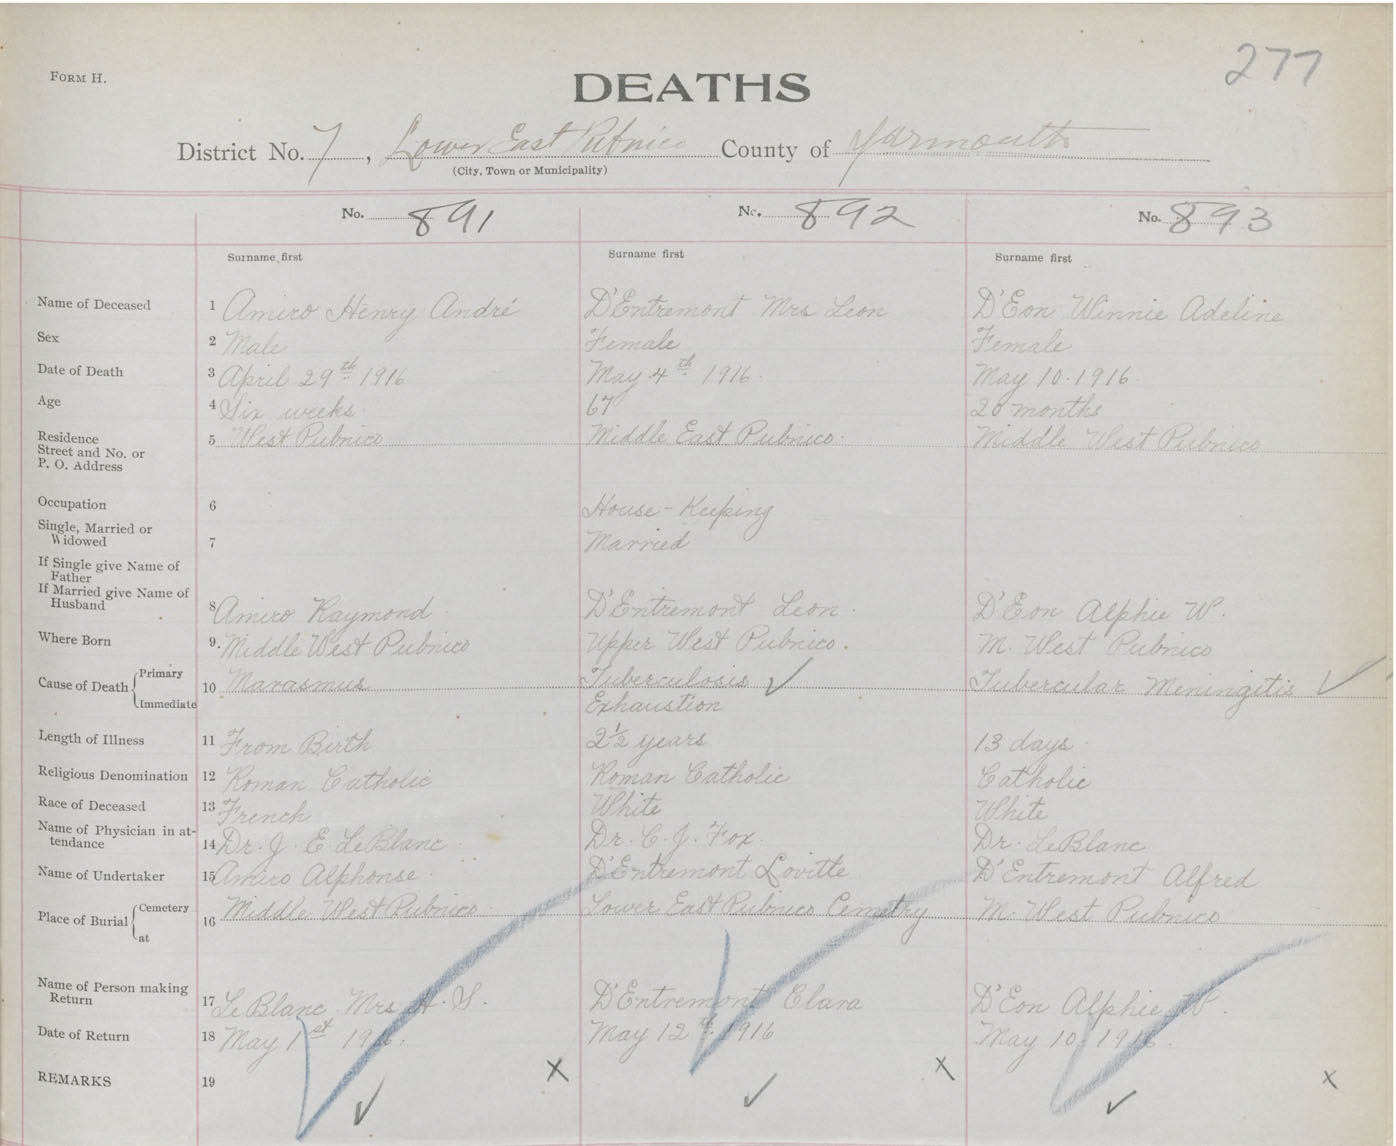 277
FORM H.
DEATHS
District No. 7, Lower East Pubnico County of Yarmouth
(City, Town or Municipality)
No. 891 No. 892 No. 893
Surname first Surname first Surname first
Name of Deceased 1 Amiro Henry André D'Entremont Mrs Leon D'Eon Winnie Adeline
Sex 2 Male Female Female
Date of Death 3 April 29th 1916 May 4th 1916. May 10. 1916.
Age 4 Six weeks. 67 20 months
Residence 5 West Pubnico Middle East Pubnico. Middle West Pubnico
Street and No. or
P. O. Address
Occupation 6 House-Keeping
Single, Married or
Widowed 7 Married
If Single give Name of
Father
If Married give Name of
Husband 8 Amiro Raymond D'Entremont Leon. D'Eon Alphie W.
Where Born 9. Middle West Pubnico Upper West Pubnico. M. West Pubnico
Cause of Death Primary 10 Marasmus Tuberculosis ✓ Tubercular Meningitis ✓
Immediate Exhaustion
Length of Illness 11 From Birth 2½ years 13 days
Religious Denomination 12 Roman Catholic Roman Catholic Catholic
Race of Deceased 13 French White White
Name of Physician in at-
tendance 14 Dr. J. E LeBlanc Dr. C. J. Fox. Dr. LeBlanc
Name of Undertaker 15 Amiro Alphonse. D'Entremont Lovitte D'Entremont Alfred
Place of Burial Cemetery 16 Middle West Pubnico Lower East Pubnico Cemetry M. West Pubnico
at
Name of Person making
Return 17 LeBlanc Mrs H. S. D'Entremont Clara D'Eon Alphie W.
Date of Return 18 May 1st 1916. May 12th. 1916 May 10. 1916.
REMARKS 19 x x x
✓ ✓ ✓